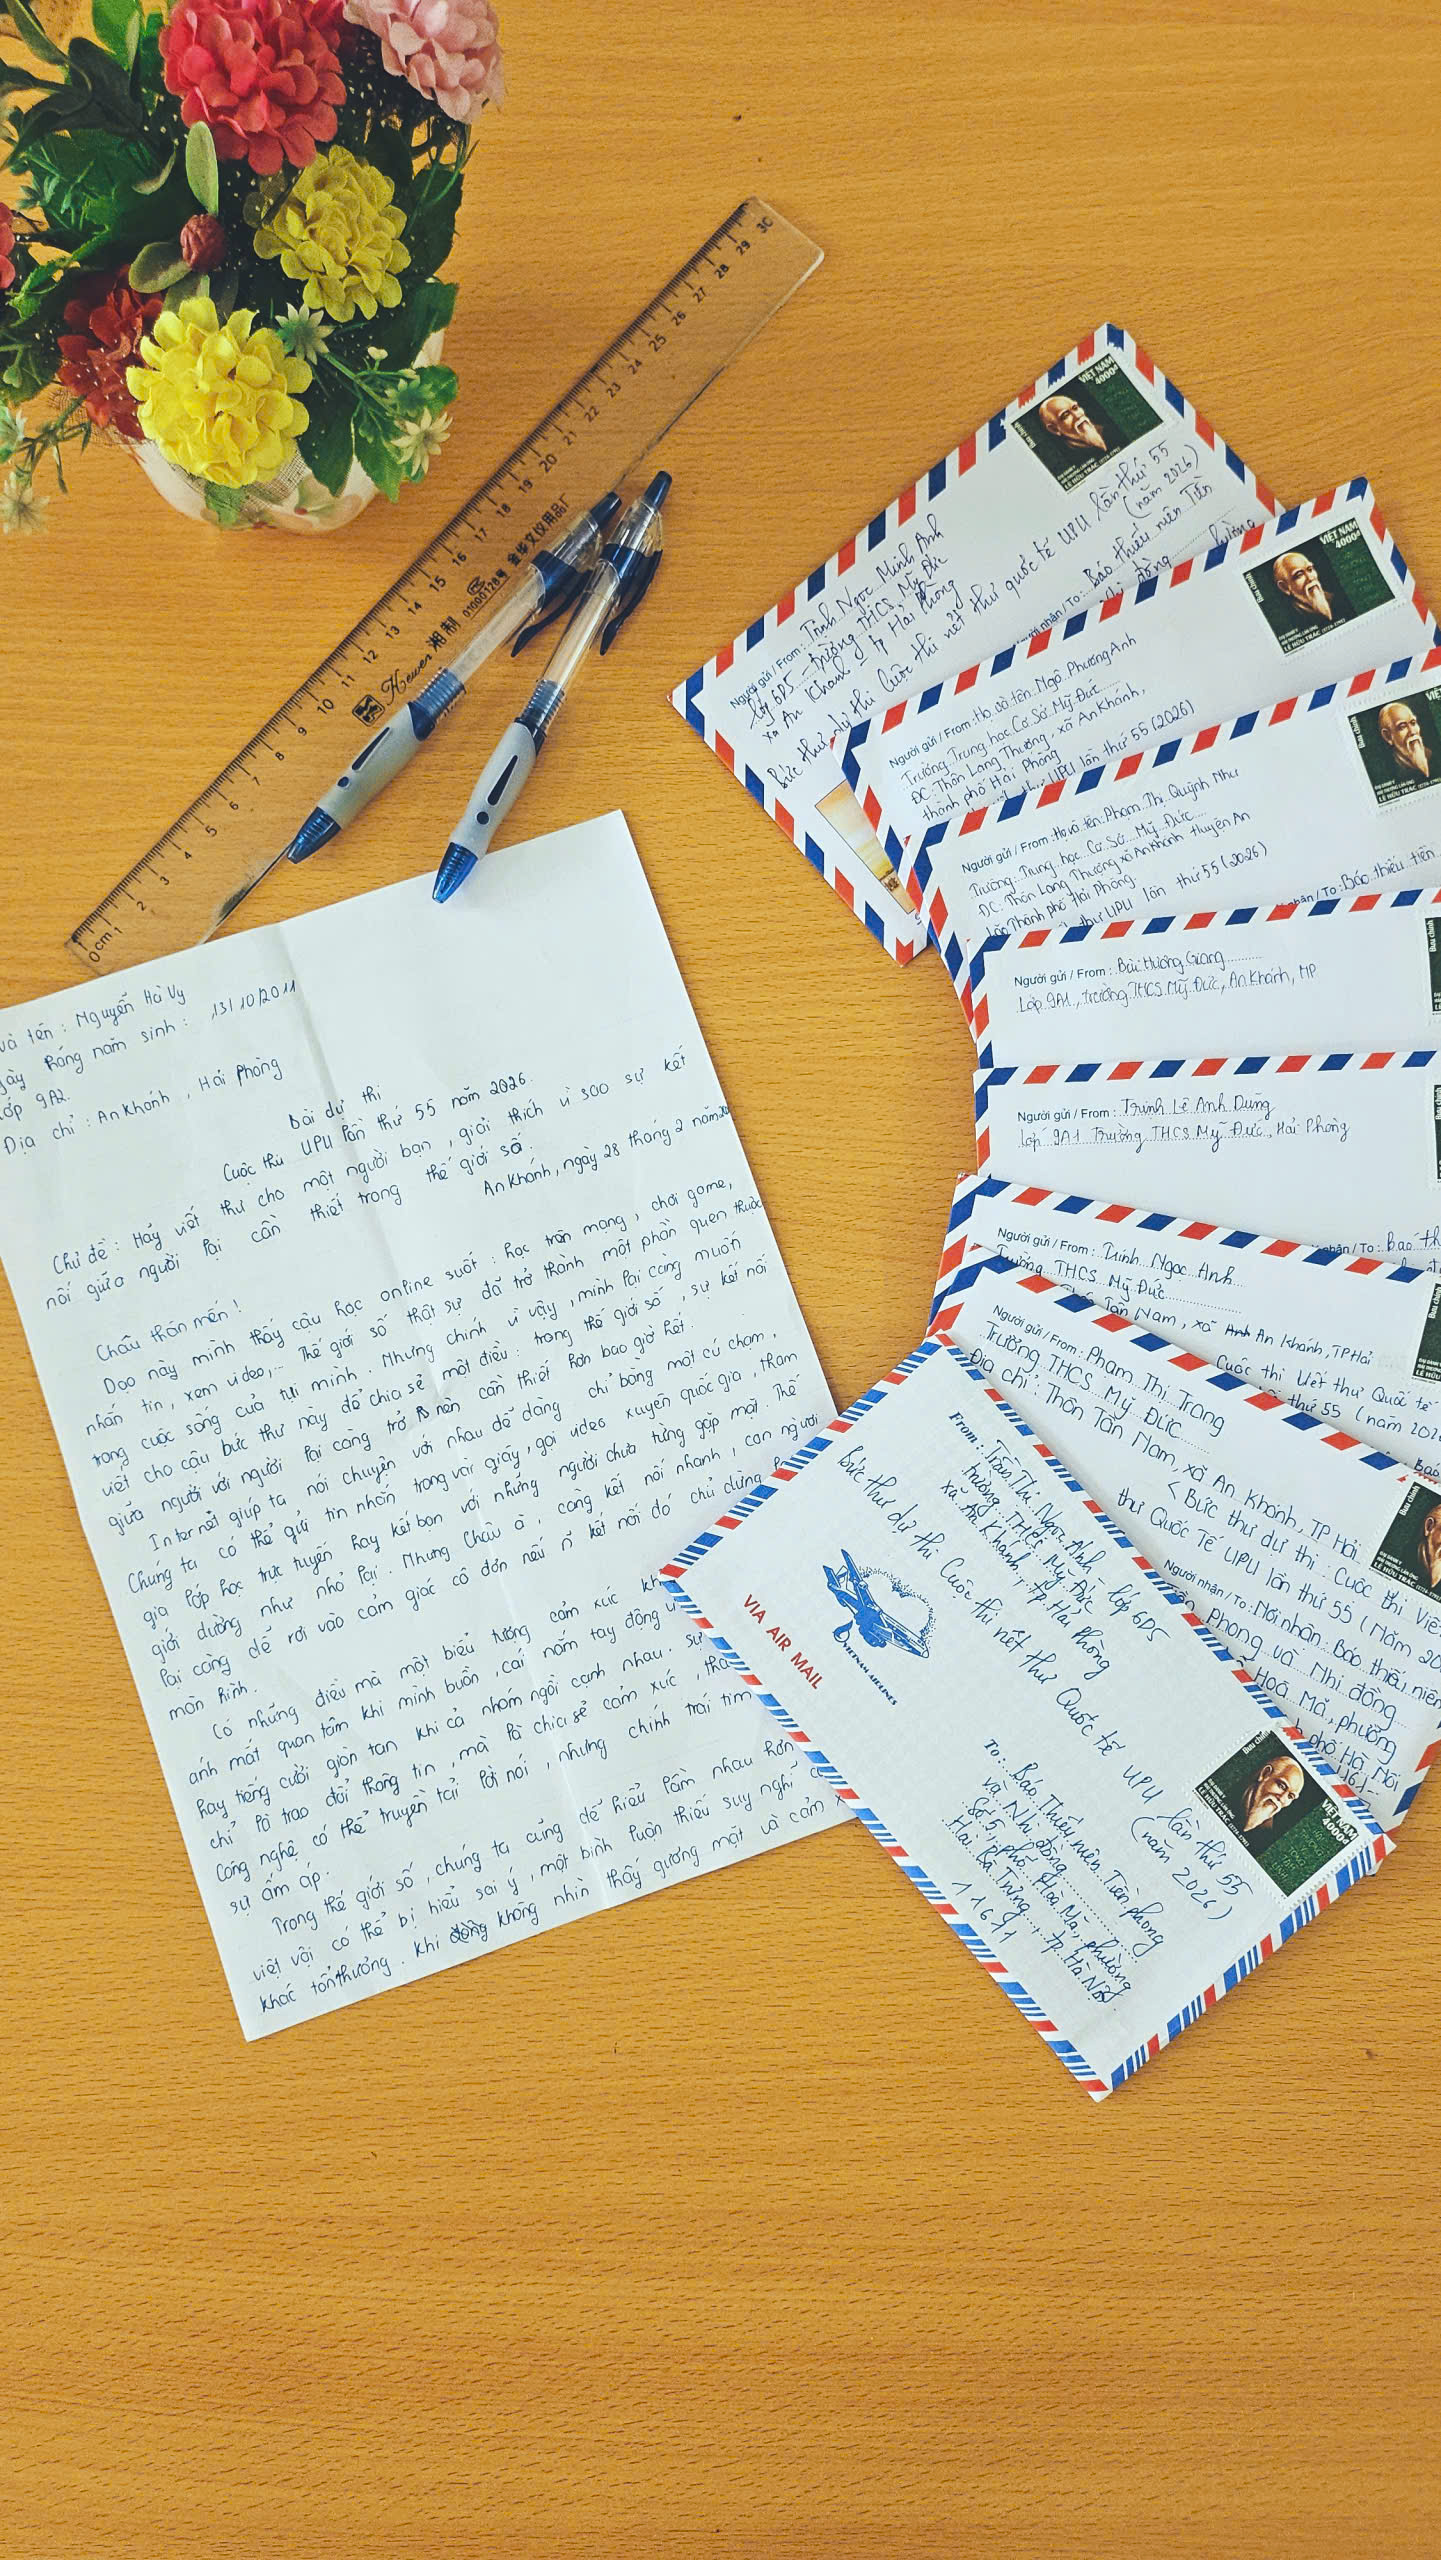 và tên : Nguyễn Hà Vy
tháng năm sinh : 13/10/2011
Lớp 9A2.
Địa chỉ : An Khánh , Hải Phòng
Bài dự thi
Cuộc thi UPU lần thứ 55 năm 2026.
Chủ đề : Hãy viết thư cho một người bạn , giải thích vì sao sự kết
nối giữa người lại cần thiết trong thế giới số.
An Khánh, ngày 28 tháng 2 năm 20
Châu thân mến !
Dạo này mình thấy cậu học online suốt : học trên mạng , chơi game,
nhắn tin , xem video,... Thế giới số thật sự đã trở thành một phần quen thuộc
trong cuộc sống của tụi mình . Nhưng chính vì vậy , mình lại càng muốn
viết cho cậu bức thư này để chia sẻ một điều : trong thế giới số , sự kết nối
giữa người với người lại càng trở nên cần thiết hơn bao giờ hết.
Internet giúp ta nói chuyện với nhau dễ dàng chỉ bằng một cú chạm ,
Chúng ta có thể gửi tin nhắn trong vài giây, gọi video xuyên quốc gia , tham
gia lớp học trực tuyến hay kết bạn với những người chưa từng gặp mặt. Thế
giới dường như nhỏ lại. Nhưng Châu à , càng kết nối nhanh , con người
lại càng dễ rơi vào cảm giác cô đơn nếu kết nối đó chỉ dừng
màn hình.
Có những điều mà một biểu tượng cảm xúc
ánh mắt quan tâm khi mình buồn , cái nắm tay động
hay tiếng cười giòn tan khi cả nhóm ngồi cạnh nhau. Sự
chỉ là trao đổi thông tin , mà là chia sẻ cảm xúc ,
Công nghệ có thể truyền tải lời nói , nhưng chính trái tim
sự ấm áp.
Trong thế giới số , chúng ta cũng dễ hiểu lầm nhau hơn
viết vội có thể bị hiểu sai ý , một bình luận thiếu suy nghĩ
khác tổn thương. Khi không nhìn thấy gương mặt và cảm
0cm 1 2 3 4 5 6 7 8 9 10 11 12 13 14 15 16 17 18 19 20 21 22 23 24 25 26 27 28 29 30
Hewen 湘制 01000128号 金华文仪用品厂
Người gửi / From : Trịnh Ngọc Minh Anh
lớp 6D5 - trường THCS Mỹ Đức
xã An Khánh - tp Hải Phòng
Bức thư dự thi Cuộc thi viết thư quốc tế UPU lần thứ 55
(năm 2026)
Báo thiếu niên Tiền
VIỆT NAM
4000đ
Bưu chính
Người gửi / From : Họ và tên: Ngô Phương Anh
Trường: Trung học Cơ Sở Mỹ Đức
ĐC: Thôn Lang Thượng, xã An Khánh,
thành phố Hải Phòng
UPU lần thứ 55 (2026)
VIỆT NAM
4000đ
Bưu chính
LÊ HỮU TRÁC (1724-1791)
Người gửi / From : Họ và tên: Phạm Thị Quỳnh Như
Trường: Trung học Cơ Sở Mỹ Đức
ĐC: Thôn Lang Thượng xã An Khánh Huyện An
Lão Thành phố Hải Phòng.
thư UPU lần thứ 55 (2026)
nhận / To : Báo thiếu tiên
Bưu chính
Người gửi / From : Bùi Hương Giang
Lớp 9A1 , trường THCS Mỹ Đức, An Khánh, HP
Bưu chính
Người gửi / From : Trịnh Lê Anh Dũng
Lớp 9A1 Trường THCS Mỹ Đức , Hải Phòng
nhận / To :
Người gửi / From : Trịnh Ngọc Anh
Trường THCS Mỹ Đức
Tân Nam , xã An Khánh, TP Hải
Cuộc thi viết thư Quốc tế
thứ 55 (năm 202
Người gửi / From : Phạm Thị Trang
Trường THCS Mỹ Đức
Địa chỉ : Thôn Tân Nam, xã An Khánh, TP Hải
< Bức thư dự thi : Cuộc thi Viết
thư Quốc Tế UPU lần thứ 55 (Năm 20
Người nhận / To : Nơi nhận : Báo thiếu niên
Phong và Nhi đồng
Hoà Mã, phường
phố Hà Nội
Bưu chính
LÊ HỮU TRÁC
From : Trần Thị Ngọc Anh - lớp 6D5
trường THCS Mỹ Đức
xã An Khánh , tp Hải Phòng
Bức thư dự thi Cuộc thi viết thư Quốc tế UPU lần thứ 55
(năm 2026)
VIA AIR MAIL
VIETNAM AIRLINES
To : Báo Thiếu niên Tiền phong
và Nhi đồng
Số 5, phố Hoà Mã, phường
Hai Bà Trưng , tp. Hà Nội.
11611
Bưu chính
VIỆT NAM
4000đ
LÊ HỮU TRÁC (1724-1791)